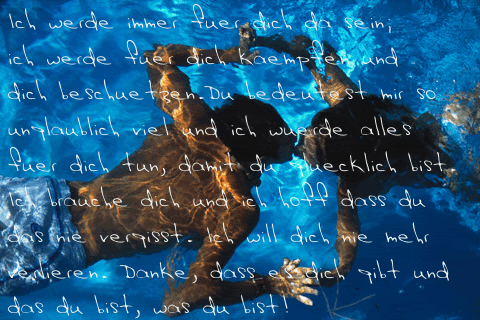 Ich werde immer fuer dich da sein,
ich werde fuer dich kaempfen und
dich beschuetzen. Du bedeutest mir so
unglaublich viel und ich wuerde alles
fuer dich tun, damit du gluecklich bist.
Ich brauche dich und ich hoff dass du
das nie vergisst. Ich will dich nie mehr
verlieren. Danke, dass es dich gibt und
das du bist, was du bist!